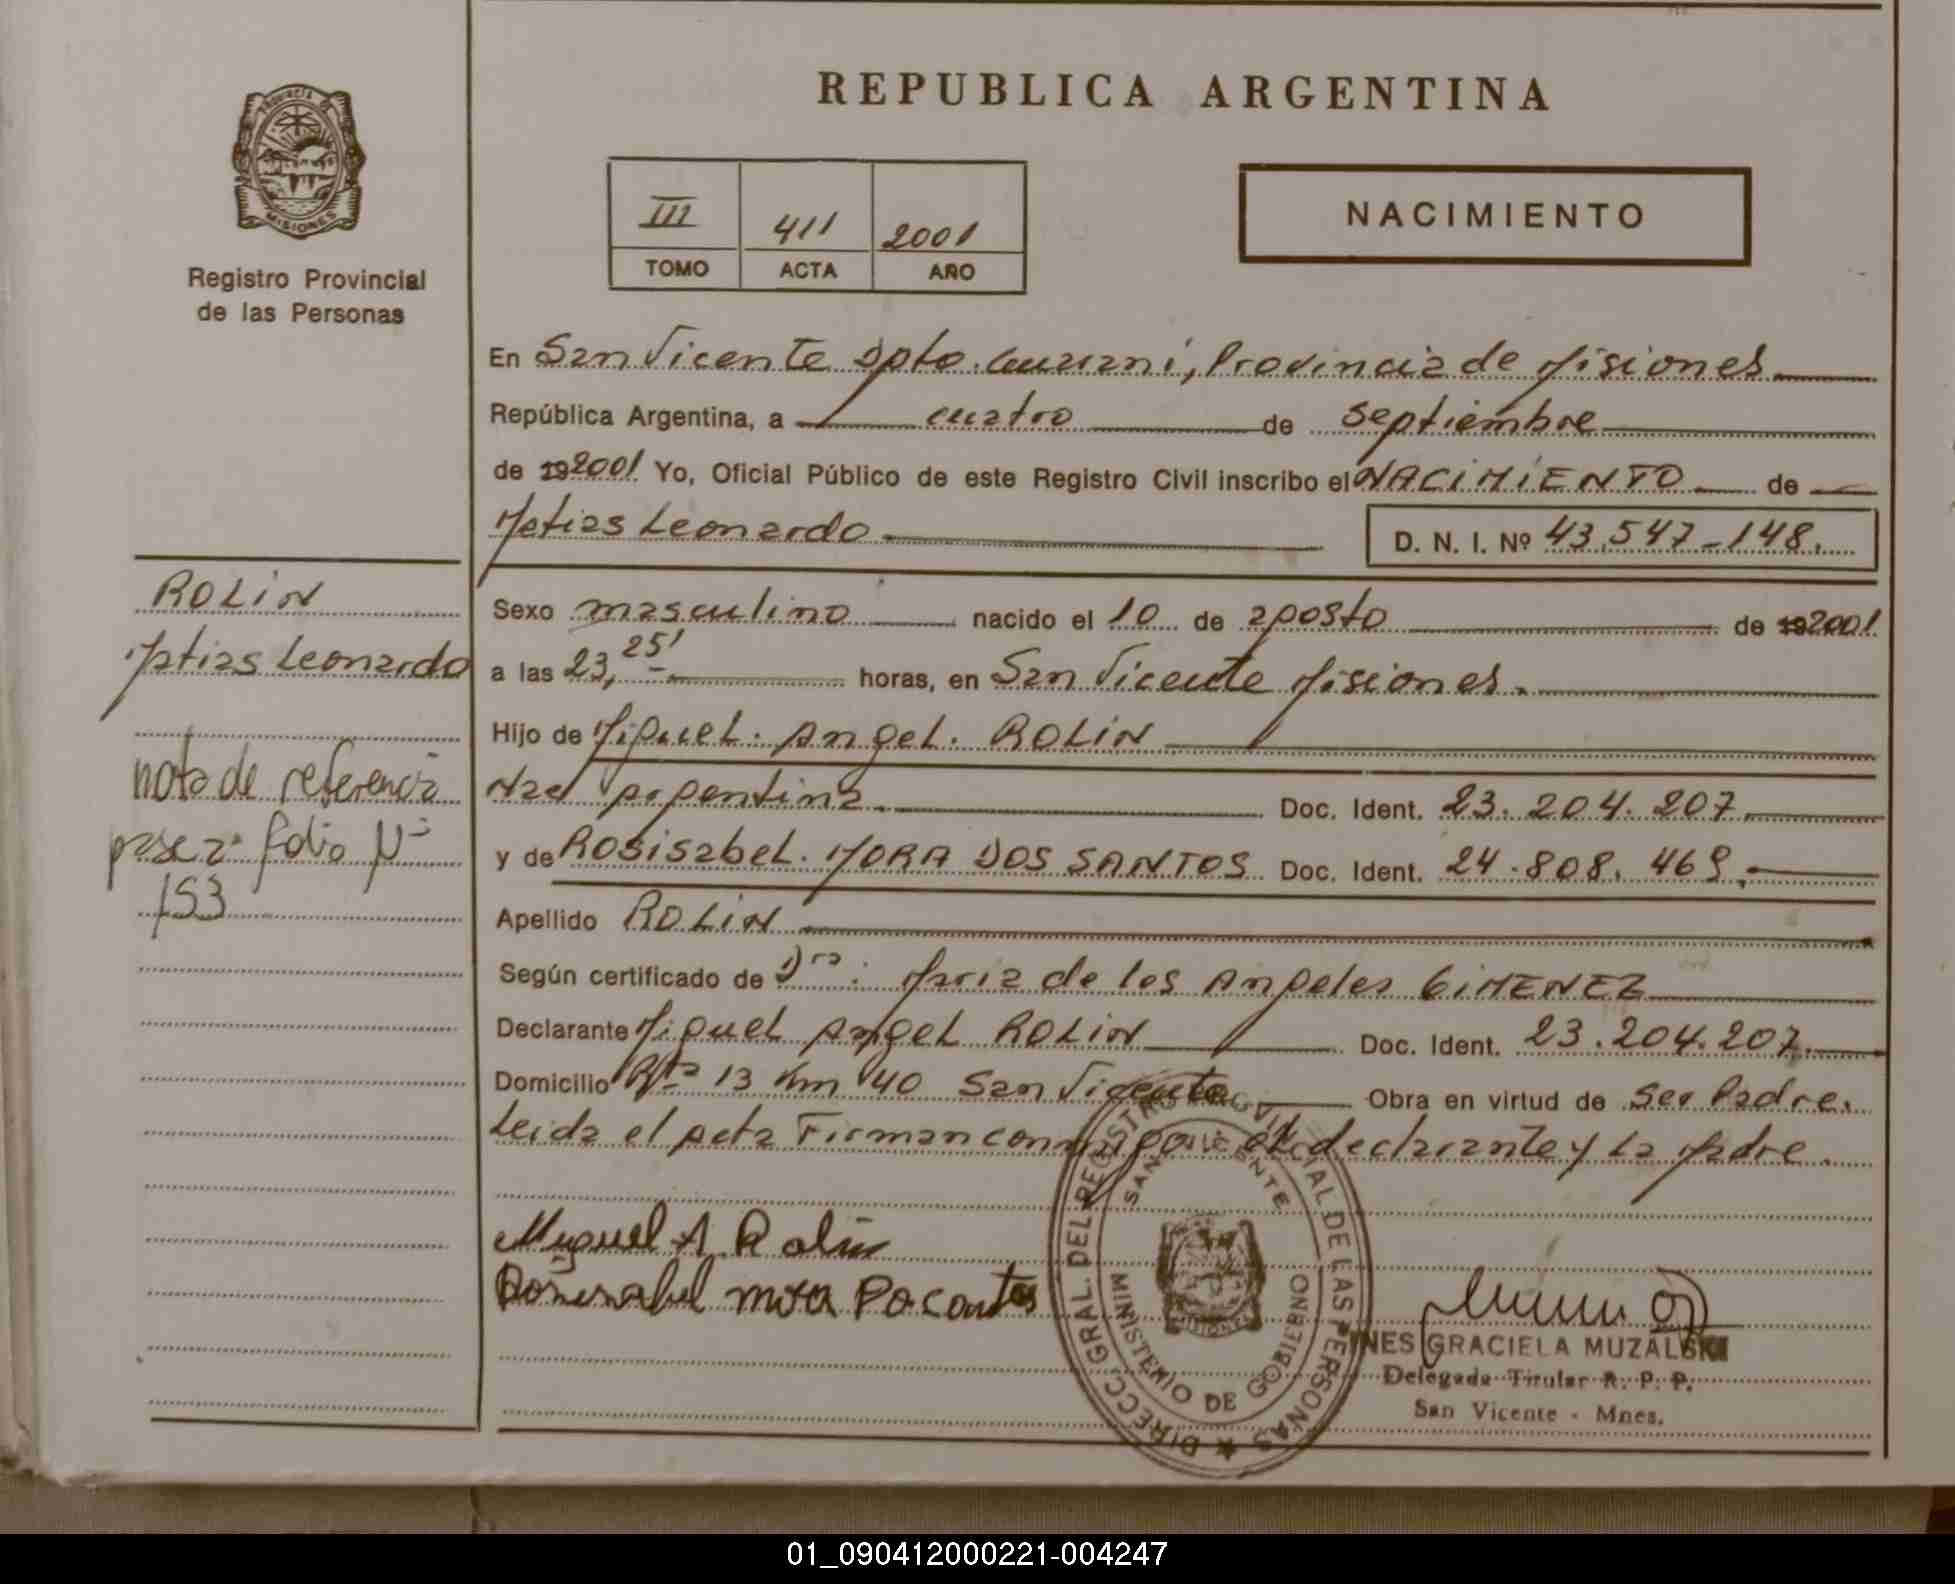 REPUBLICA ARGENTINA
PROVINCIA DE
MISIONES
Registro Provincial
de las Personas
III 411 2001
TOMO ACTA AÑO
NACIMIENTO
En San Vicente Dpto. Guarani, Provincia de Misiones
República Argentina, a cuatro de septiembre
de 192001 Yo, Oficial Público de este Registro Civil inscribo el NACIMIENTO de
Matias Leonardo D. N. I. Nº 43.547-148.
ROLIN
Matias Leonardo
nota de referencia
pase a folio Nº
153
Sexo masculino nacido el 10 de agosto de 192001
a las 23,25' horas, en San Vicente Misiones.
Hijo de Miguel. Angel. ROLIN
Nac Argentina Doc. Ident. 23.204.207
y de ROSISabel. MORA DOS SANTOS Doc. Ident. 24.808.469.
Apellido ROLIN
Según certificado de Dra: Maria de los Angeles GIMENEZ
Declarante Miguel Angel ROLIN Doc. Ident. 23.204.207.
Domicilio Rta 13 Km 40 San Vicente Obra en virtud de ser Padre.
Leida el Acta Firman conmigo el declarante y la Madre.
Miguel A Rolin
mora
DIRECC. GRAL. DEL REGISTRO PROVINCIAL DE LAS PERSONAS
SAN VICENTE
MINISTERIO DE GOBIERNO
MISIONES
INES GRACIELA MUZALSKI
Delegada Titular R. P. P.
San Vicente - Mnes.
01_090412000221-004247